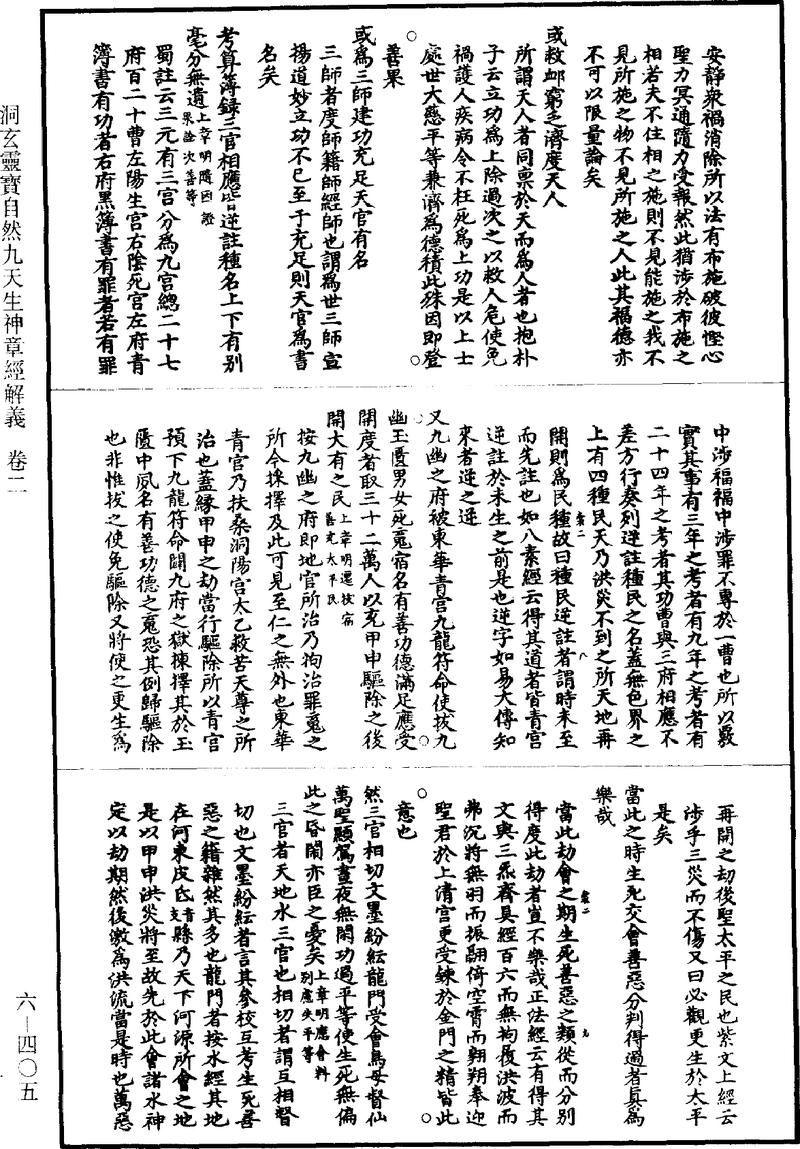 洞玄靈寶自然九天生神章經解義　卷二
六—四〇五
安靜衆禍消除所以法有布施破彼慳心
聖力冥通隨力受報然此猶涉於布施之
相若夫不住相之施則不見能施之我不
見所施之物不見所施之人此其福德亦
不可以限量論矣
或救卹窮乏濟度天人
所謂天人者同稟於天而爲人者也抱朴
子云立功爲上除過次之以救人危使免
禍護人疾病令不枉死爲上功是以上士
處世大慈平等兼濟爲德積此殊因即登
善果
或爲三師建功充足天官有名
三師者度師籍師經師也謂爲世三師宣
揚道妙立功不已至于充足則天官爲書
名矣
考算簿録三官相應皆逆註種名上下有別
毫分無遺上章明隨因證果詮次善等
蜀註云三元有三官分爲九宮總二十七
府百二十曹左陽生宮右陰死宮左府青
簿書有功者右府黑簿書有罪者若有罪
中涉福福中涉罪不專於一曹也所以覈
實其事有三年之考者有九年之考者有
二十四年之考者其功曹與三府相應不
差方行奏列逆註種民之名蓋無色界之
上有四種民天乃洪災不到之所天地再
開則爲民種故曰種民逆註者謂時未至
而先註也如八素經云得其道者皆青宮
逆註於未生之前是也逆字如易大傳知
來者逆之逆
又九幽之府被東華青宮九龍符命使拔九
幽玉匱男女死䰟宿名有善功德滿足應受
開度者取三十二萬人以充甲申驅除之後
開大有之民上章明還拔宿善充太平民
按九幽之府即地官所治乃拘治罪䰟之
所今採擇及此可見至仁之無外也東華
青宮乃扶桑洞陽宮太乙救苦天尊之所
治也蓋緣甲申之劫當行驅除所以青宮
預下九龍符命闢九府之獄揀擇其於玉
匱中夙名有善功德之䰟恐其例歸驅除
也非惟拔之使免驅除又將使之更生爲
再開之劫後聖太平之民也紫文上經云
涉乎三災而不傷又曰必觀更生於太平
是矣
當此之時生死交會善惡分判得過者眞爲
樂哉
當此劫會之期生死善惡之類從而分別
得度此劫者豈不樂哉正法經云有得其
文與三炁齊具經百六而無拘履洪波而
弗沉將無羽而振翮倚空霄而翱翔奉迎
聖君於上清宮更受鍊於金門之精皆此
意也
然三官相切文墨紛紜龍門受會鳥母督仙
萬聖顯駕晝夜無閑功過平等使生死無偏
此之昏鬧亦臣之憂矣上章明應會料別慮失平等
三官者天地水三官也相切者謂互相督
切也文墨紛紜者言其參校互考生死善
惡之籍雜然其多也龍門者按水經其地
在河東皮氏音支縣乃天下河源所會之地
是以甲申洪災將至故先於此會諸水神
定以劫期然後激爲洪流當是時也萬惡